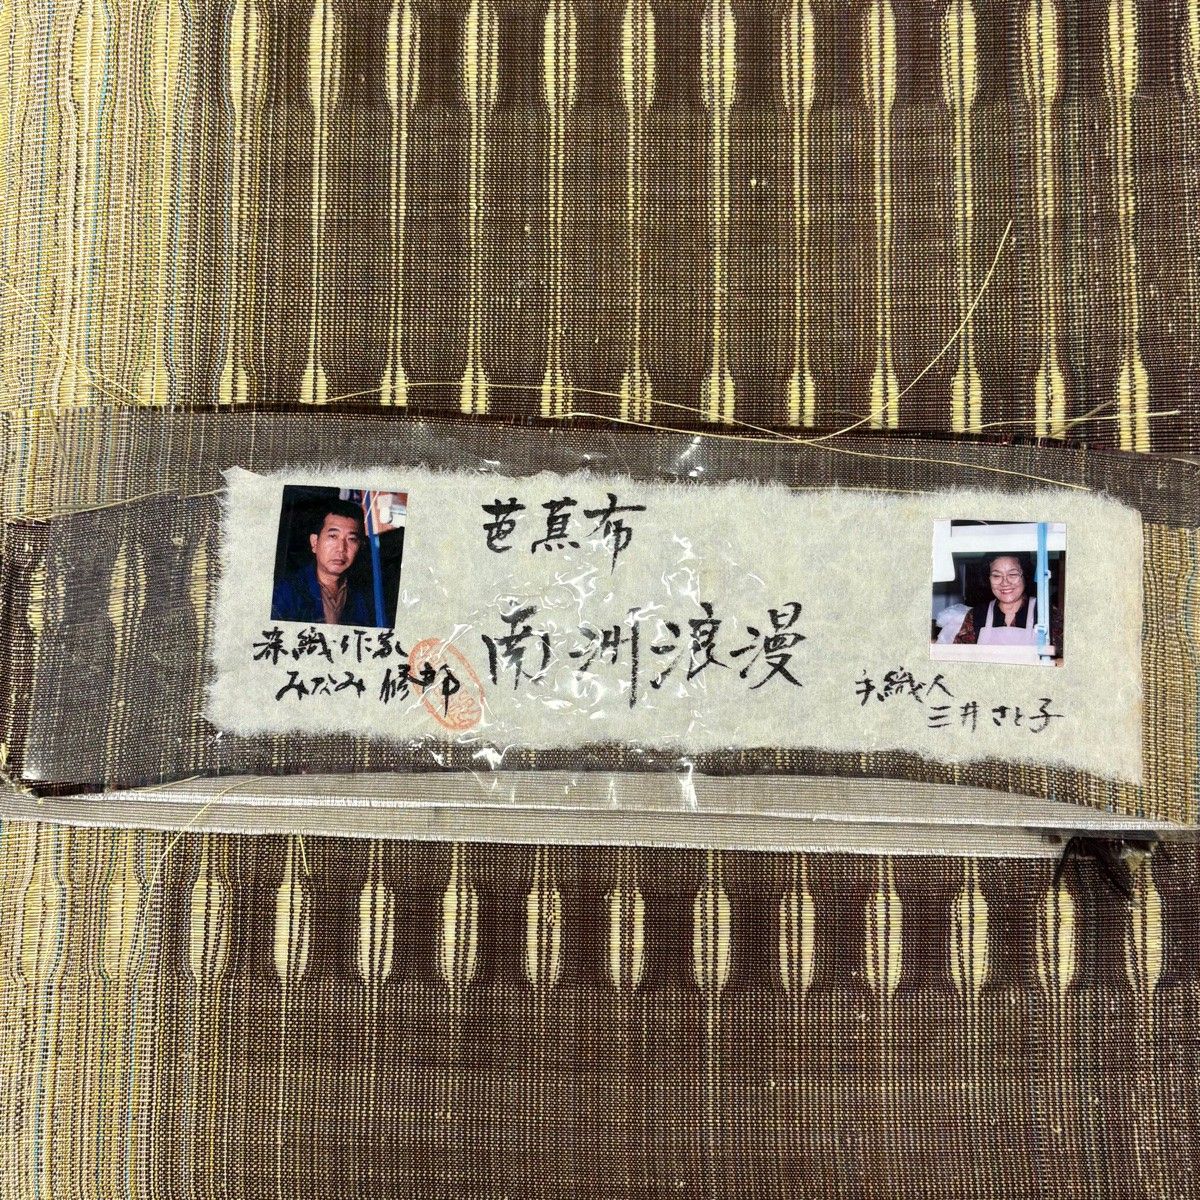 芭蕉布
南洲浪漫
染織作家
みなみ修郎
手織人
三井さと子